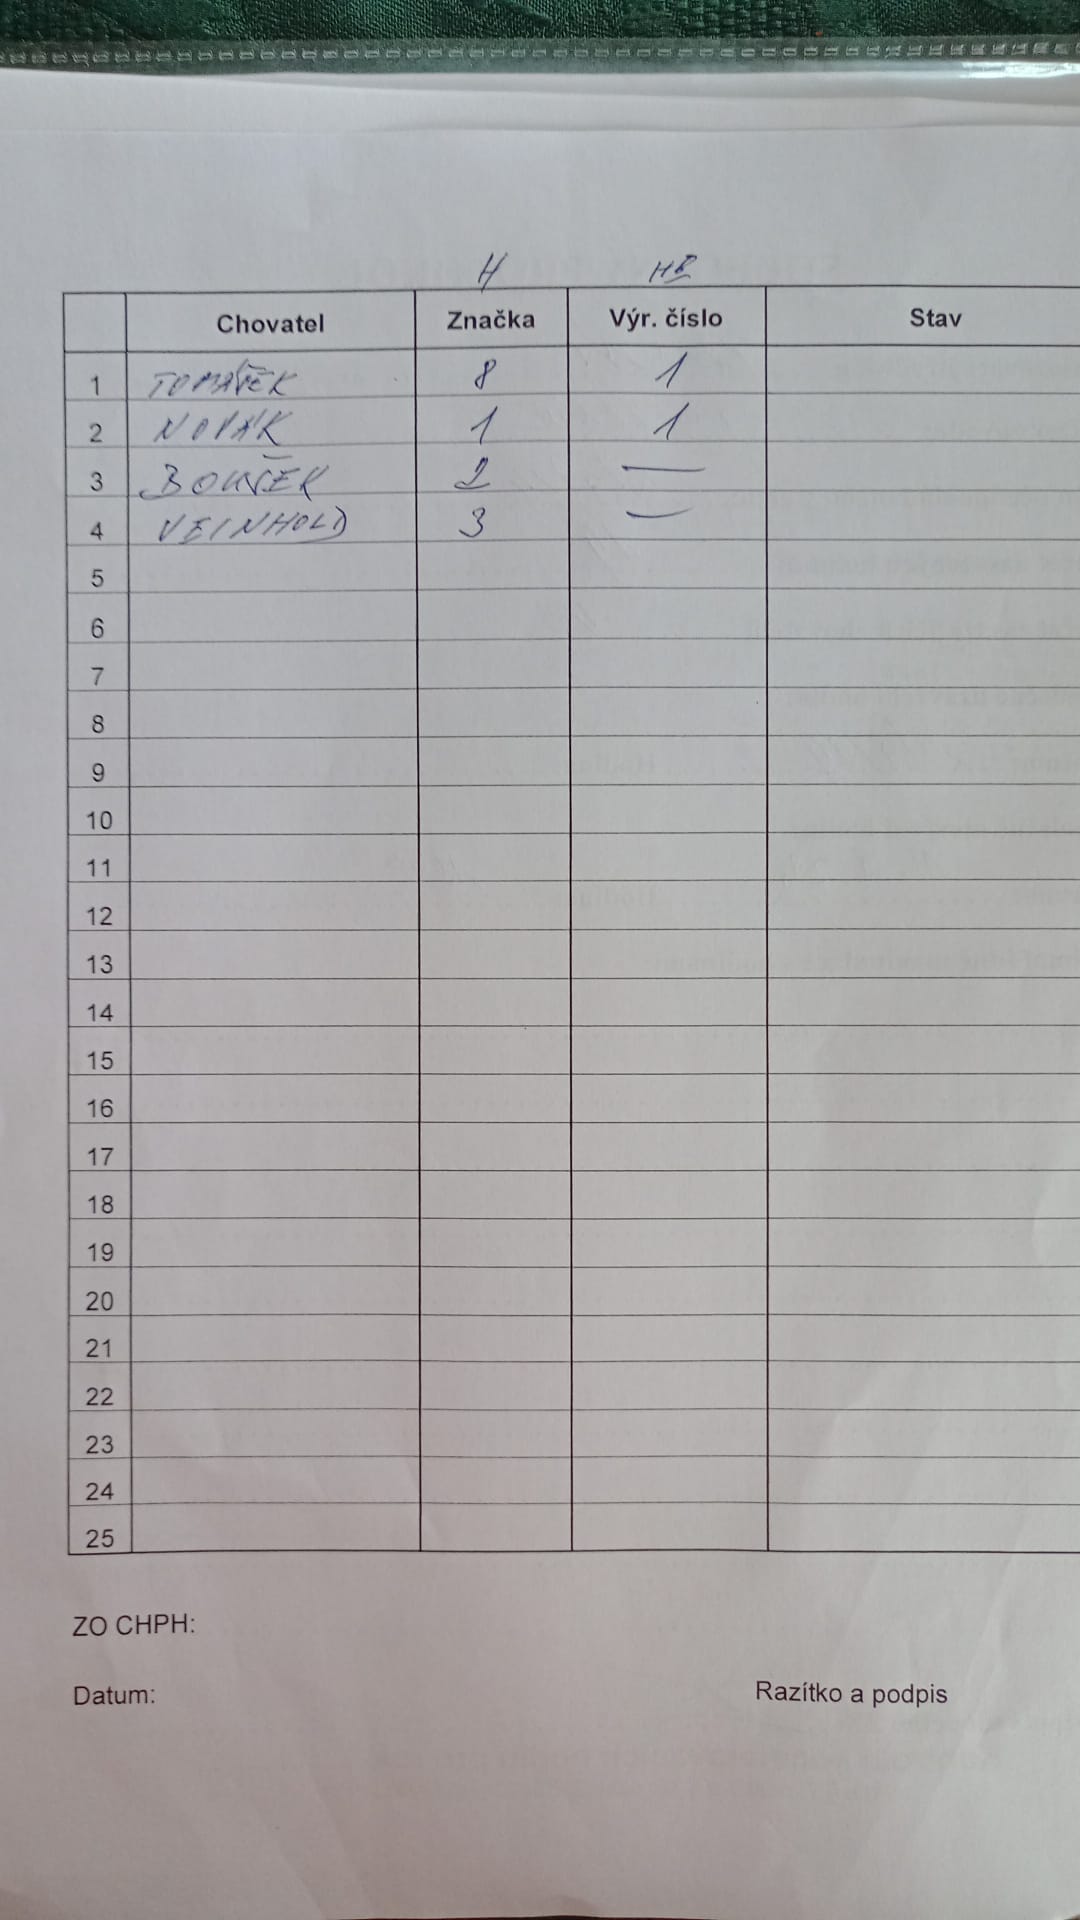 H HB
Chovatel Značka Výr. číslo Stav
1 TOMÁŠEK 8 1
2 NOVÁK 1 1
3 BOUŠEK 2 —
4 VEINHOLD 3 —
5
6
7
8
9
10
11
12
13
14
15
16
17
18
19
20
21
22
23
24
25
ZO CHPH:
Datum: Razítko a podpis